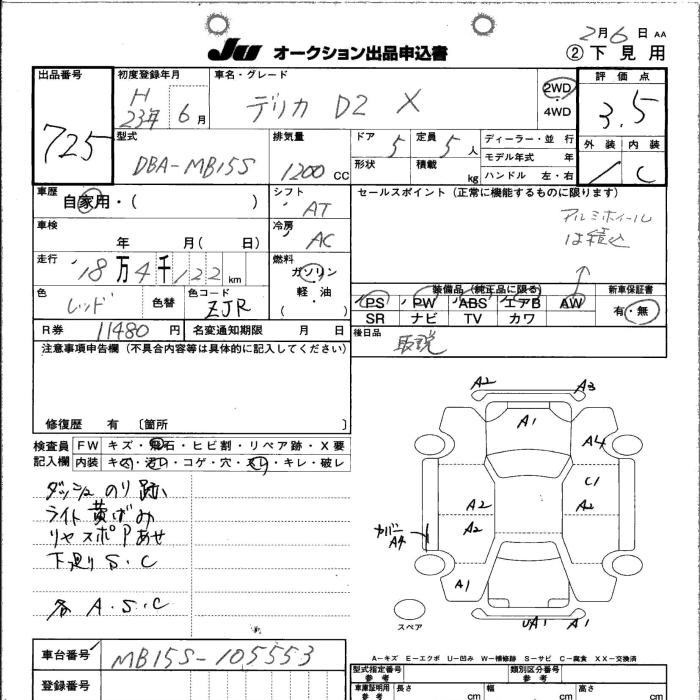 2月6日 AA
JU オークション出品申込書 ②下見用
出品番号 725
初度登録年月 H 23年 6月
車名・グレード デリカ D2 X
2WD ・ 4WD
評価点 3.5
外装 内装 C
型式 DBA-MB15S
排気量 1200 CC
ドア 5 定員 5人
形状 積載 kg
ディーラー・並行
モデル年式 年
ハンドル 左・右
車歴 自家用・( )
シフト AT
セールスポイント(正常に機能するものに限ります)
アルミホイール
は積込
車検 年 月( 日)
冷房 AC
走行 18万4千122 km
燃料 ガソリン
軽・油
( )
色 レッド 色替 色コード ZJR
装備品(純正品に限る) 新車保証書
PS PW ABS エアB AW 有・無
SR ナビ TV カワ
R券 11480円 名変通知期限 月 日
後日品 取説
注意事項申告欄(不具合内容等は具体的に記入してください)
修復歴 有 〔箇所 〕
検査員記入欄
FW キズ・飛石・ヒビ割・リペア跡・X要
内装 キズ・汚レ・コゲ・穴・スレ・キレ・破レ
ダッシュのり跡
ライト黄ばみ
リヤスポアあせ
下廻りS.C
各A.S.C
A2 A3
A1
A4
C1
A2 A2
A2
カバー
A4
A1
スペア
UA1 A1
A-キズ E-エクボ U-凹み W-補修跡 S-サビ C-腐食 XX-交換済
車台番号 MB15S-105553
登録番号
型式指定番号 参考 類別区分番号 参考
車庫証明用 参考 長さ cm 幅 cm 高さ cm